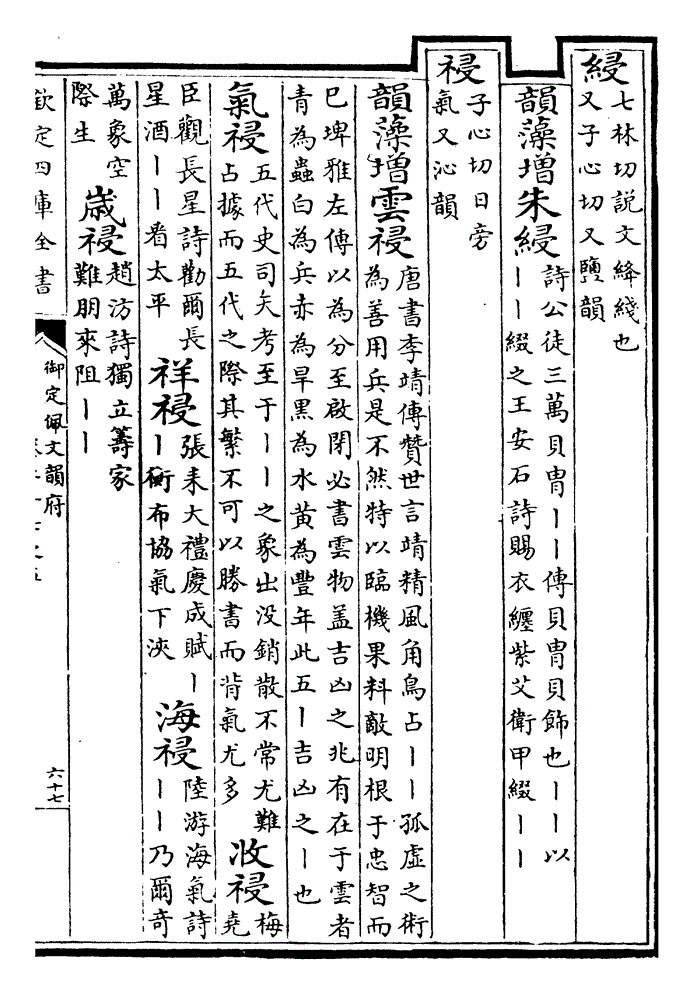 綅 七林切説文絳綫也
又子心切又鹽韻
韻藻增朱綅 詩公徒三萬貝胄丨丨傳貝胄貝飾也丨丨以
丨丨綴之王安石詩賜衣纏紫艾衛甲綴丨丨
祲 子心切日旁
氣又沁韻
韻藻增雲祲 唐書李靖傳贊世言靖精風角鳥占丨丨孤虛之術
為善用兵是不然特以臨機果料敵明根于忠智而
巳埤雅左傳以為分至啟閉必書雲物盖吉凶之兆有在于雲者
青為蟲白為兵赤為旱黑為水黄為豐年此五丨吉凶之丨也
氣祲 五代史司天考至于丨丨之象出没銷散不常尤難
占據而五代之際其繁不可以勝書而背氣尤多
收祲 梅
堯
臣觀長星詩勸爾長
星酒丨丨看太平
祥祲 張耒大禮慶成賦丨
丨衝布協氣下浹
海祲 陸游海氣詩
丨丨乃爾奇
萬象空
際生
歳祲 趙汸詩獨立籌家
難朋來阻丨丨
欽定四庫全書
御定佩文韻府
六十七